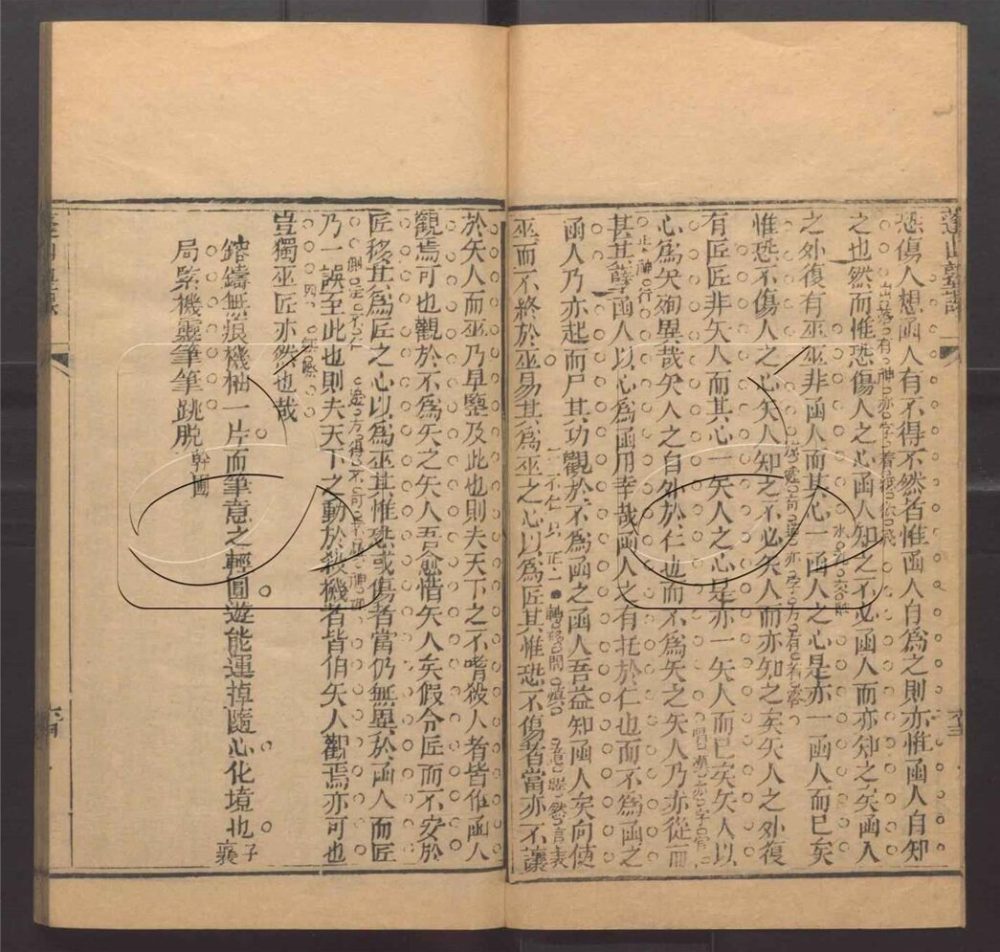 恐傷人想函人有不得不然者惟函人自爲之則亦惟函人自知
之也然而惟恐傷人之心函人知之不必函人而亦知之矣函人
之外復有巫巫非函人而其心一函人之心是亦一函人而已矣
惟恐不傷人之心矢人知之不必矢人而亦知之矣矢人之外復
有匠匠非矢人而其心一矢人之心是亦一矢人而已矣矢人以
心爲矢殉異哉矢人之自外於仁也而不爲矢之矢人乃亦從而
甚其辭函人以心爲函用幸哉函人之有托於仁也而不爲函之
函人乃亦起而尸其功觀於不爲函之函人吾益知函人矣向使
巫而不終於巫易其爲巫之心以爲匠其惟恐不傷者當亦不讓
於矢人而巫乃早鑒及此也則夫天下之不嗜殺人者皆作函人
觀焉可也觀於不爲矢之矢人吾愈惜矢人矣假令匠而不安於
匠移其爲匠之心以爲巫其惟恐或傷者當仍無異於函人而匠
乃一誤至此也則夫天下之動於殺機者皆伯矢人觀焉亦可也
豈獨巫匠亦然也哉
鎔鑄無痕機柚一片而筆意之輕圓遊能運掉隨心化境也子襄
局緊機靈筆筆跳脫幹圃